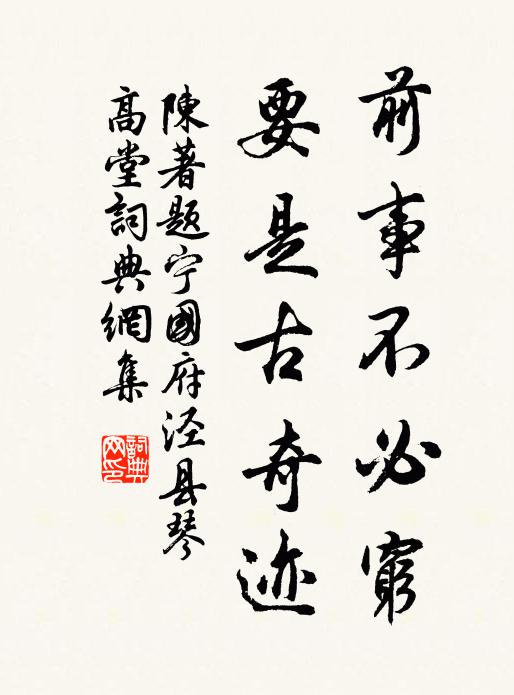 前事不必窮
要是古奇迹
陳著題宁國府泾县琴
高堂詞典網集
詞典网印